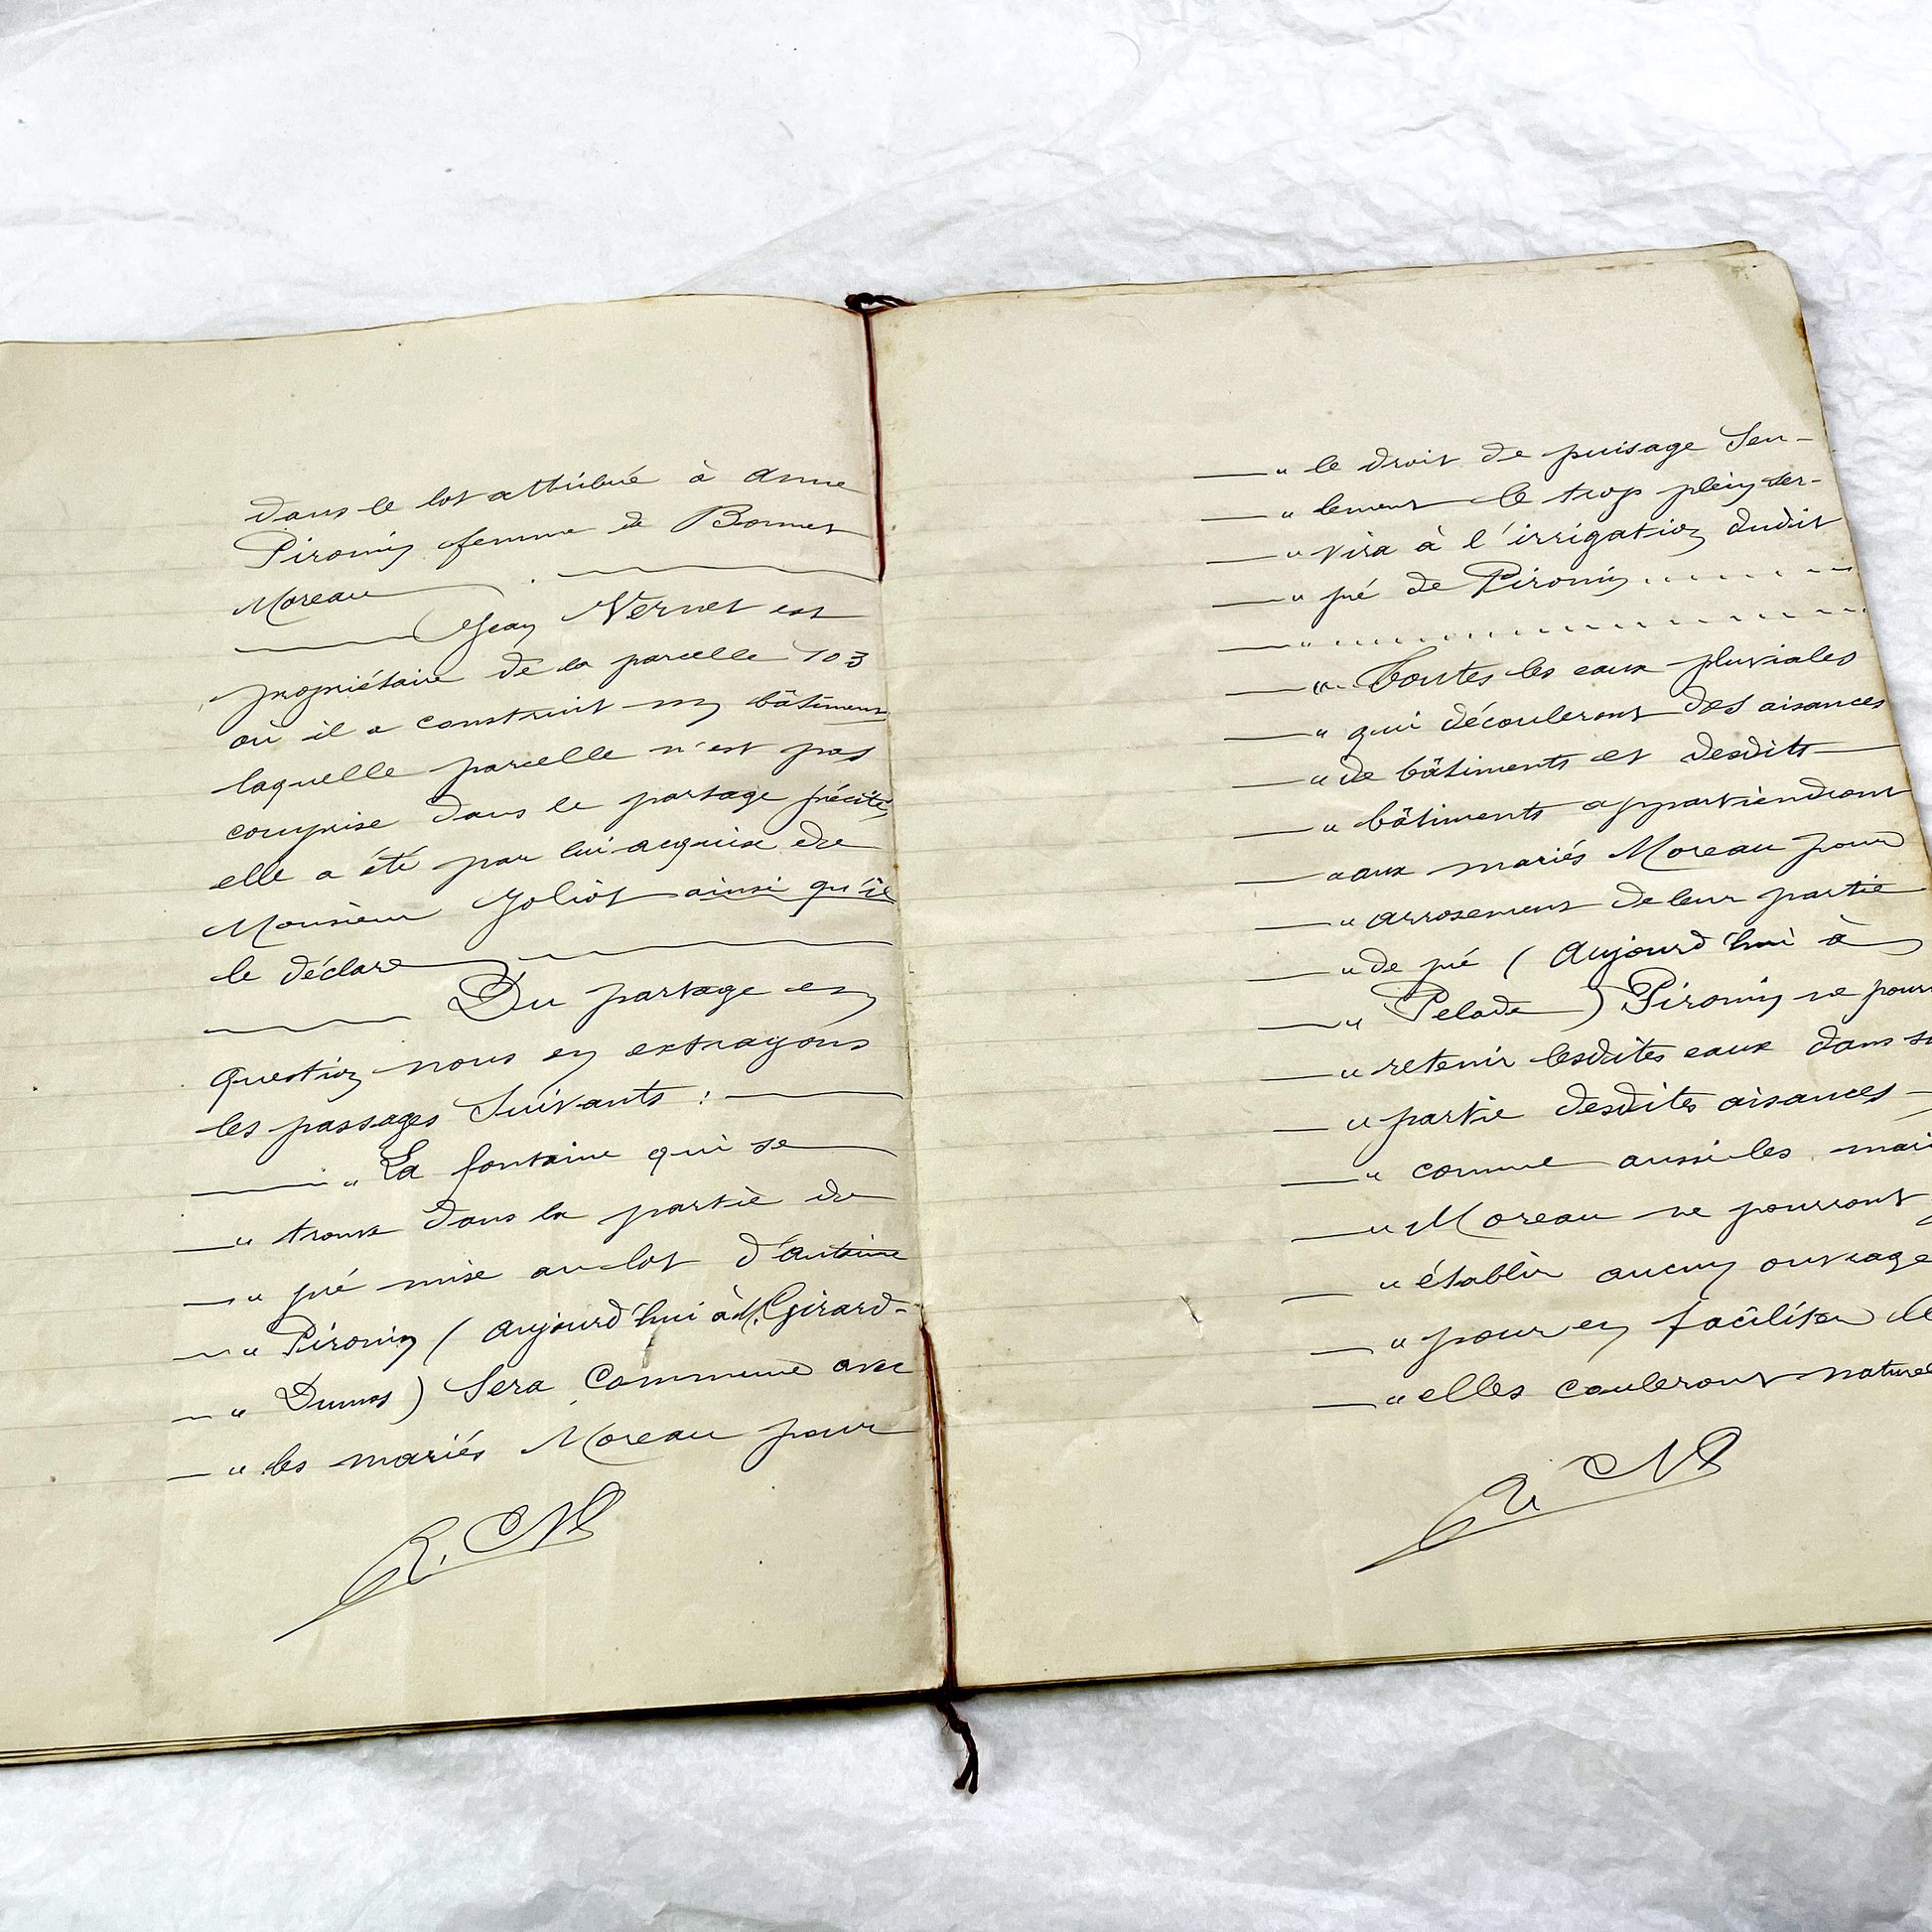 dans le lot attribué à Anne
Pironin femme de Bonnet
Moreau
Jean Vernet est
propriétaire de la parcelle 103
où il a construit un bâtiment
laquelle parcelle n'est pas
comprise dans le partage précité,
elle a été par lui acquise de
Monsieur Joliot ainsi qu'il
le déclare
Du partage en
question nous en extrayons
les passages suivants :
" La fontaine qui se
" trouve dans la partie de
" pré mise au lot d'Antoine
" Pironin ( aujourd'hui à M. Girard-
" Dumas ) sera commune avec
" les mariés Moreau pour
" le droit de puisage seu-
" lement le trop plein ser-
" vira à l'irrigation dudit
" pré de Pironin ........
" ................
" Toutes les eaux pluviales
" qui découleront des aisances
" de bâtiments et desdits
" bâtiments appartiendront
" aux mariés Moreau pour
" arrosement de leur partie
" de pré ( aujourd'hui à
" Pelade ) Pironin ne pourr
" retenir lesdites eaux dans s
" partie desdites aisances
" comme aussi les mari
" Moreau ne pourront
" établir aucun ouvrage
" pour en faciliter le
" elles couleront naturel